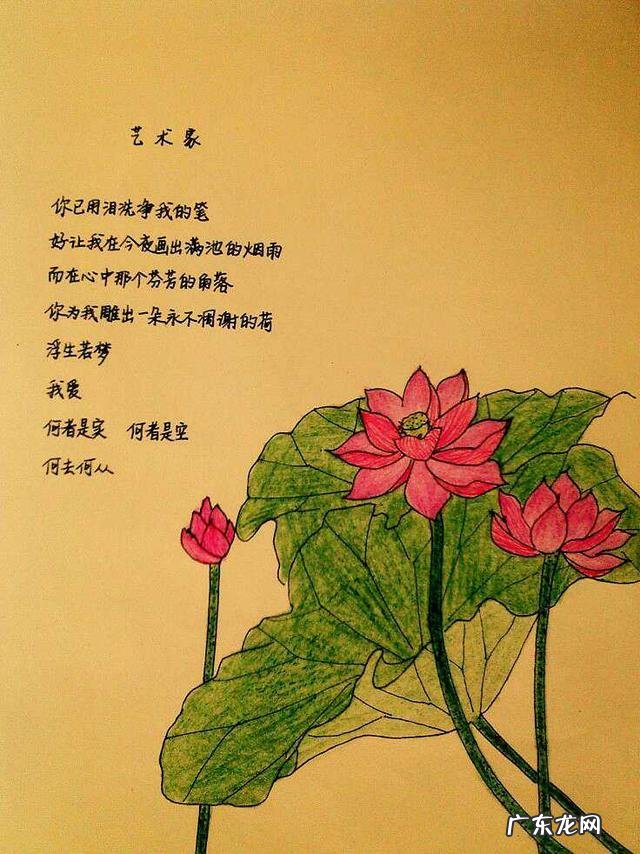 艺术家
你已用泪洗净我的笔
好让我在今夜画出满池的烟雨
而在心中那个芬芳的角落
你为我雕出一朵永不凋谢的荷
浮生若梦
我爱
何者是实 何者是空
何去何从
广东龙网